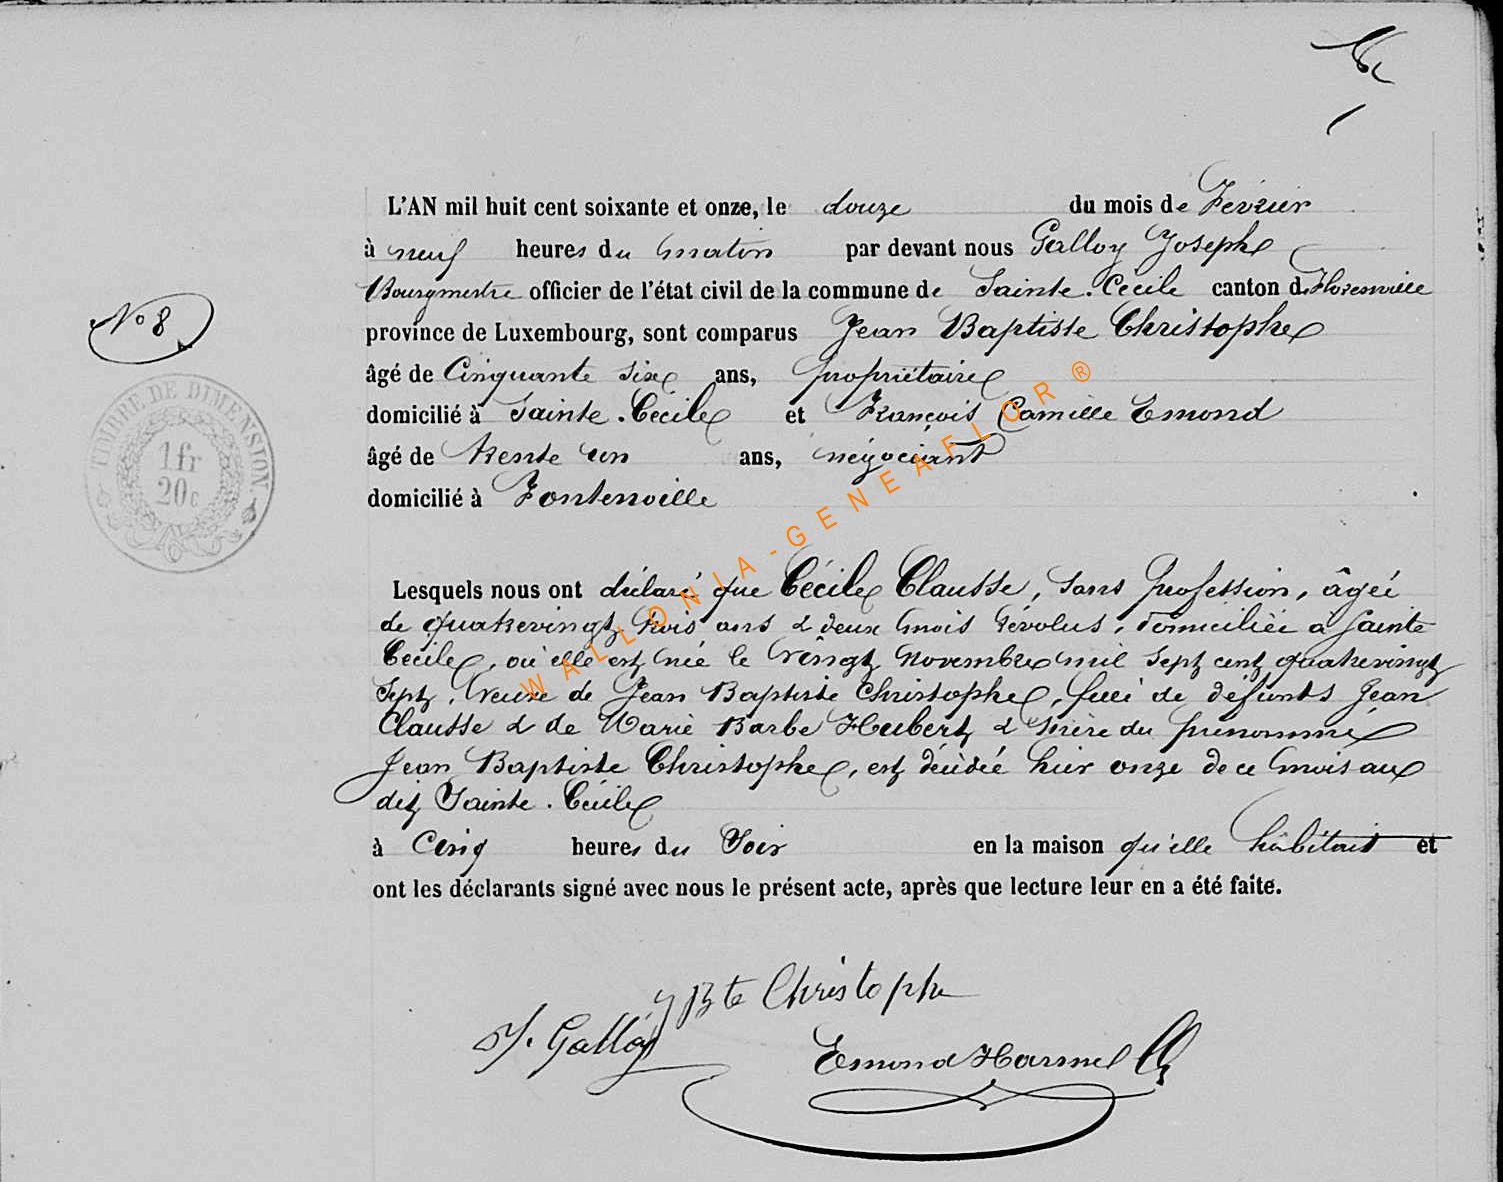 L'AN mil huit cent soixante et onze, le douze du mois de Février
à neuf heures du matin par devant nous Galloy Joseph
Bourgmestre officier de l'état civil de la commune de Sainte-Cécile canton de Florenville
province de Luxembourg, sont comparus Jean Baptiste Christophe
âgé de Cinquante six ans, propriétaire
domicilié à Sainte-Cécile et François Camille Emond
âgé de trente un ans, négociant
domicilié à Fontenoille
No 8
TIMBRE DE DIMENSION
1fr
20c
Lesquels nous ont déclaré que Cécile Clausse, sans profession, âgée
de quatrevingt trois ans & deux mois révolus, domiciliée à Sainte
Cécile, où elle est née le vingt novembre mil sept cent quatrevingt
sept, veuve de Jean Baptiste Christophe, fille de défunts Jean
Clausse & de Marie Barbe Hubert & mère du prénommé
Jean Baptiste Christophe, est décédée hier onze de ce mois au
dit Sainte-Cécile
à Cinq heures du Soir en la maison qu'elle habitait et
ont les déclarants signé avec nous le présent acte, après que lecture leur en a été faite.
JBte Christophe
J. Galloy
Emond Harmel
WALLONIA-GENEAFLOR ®